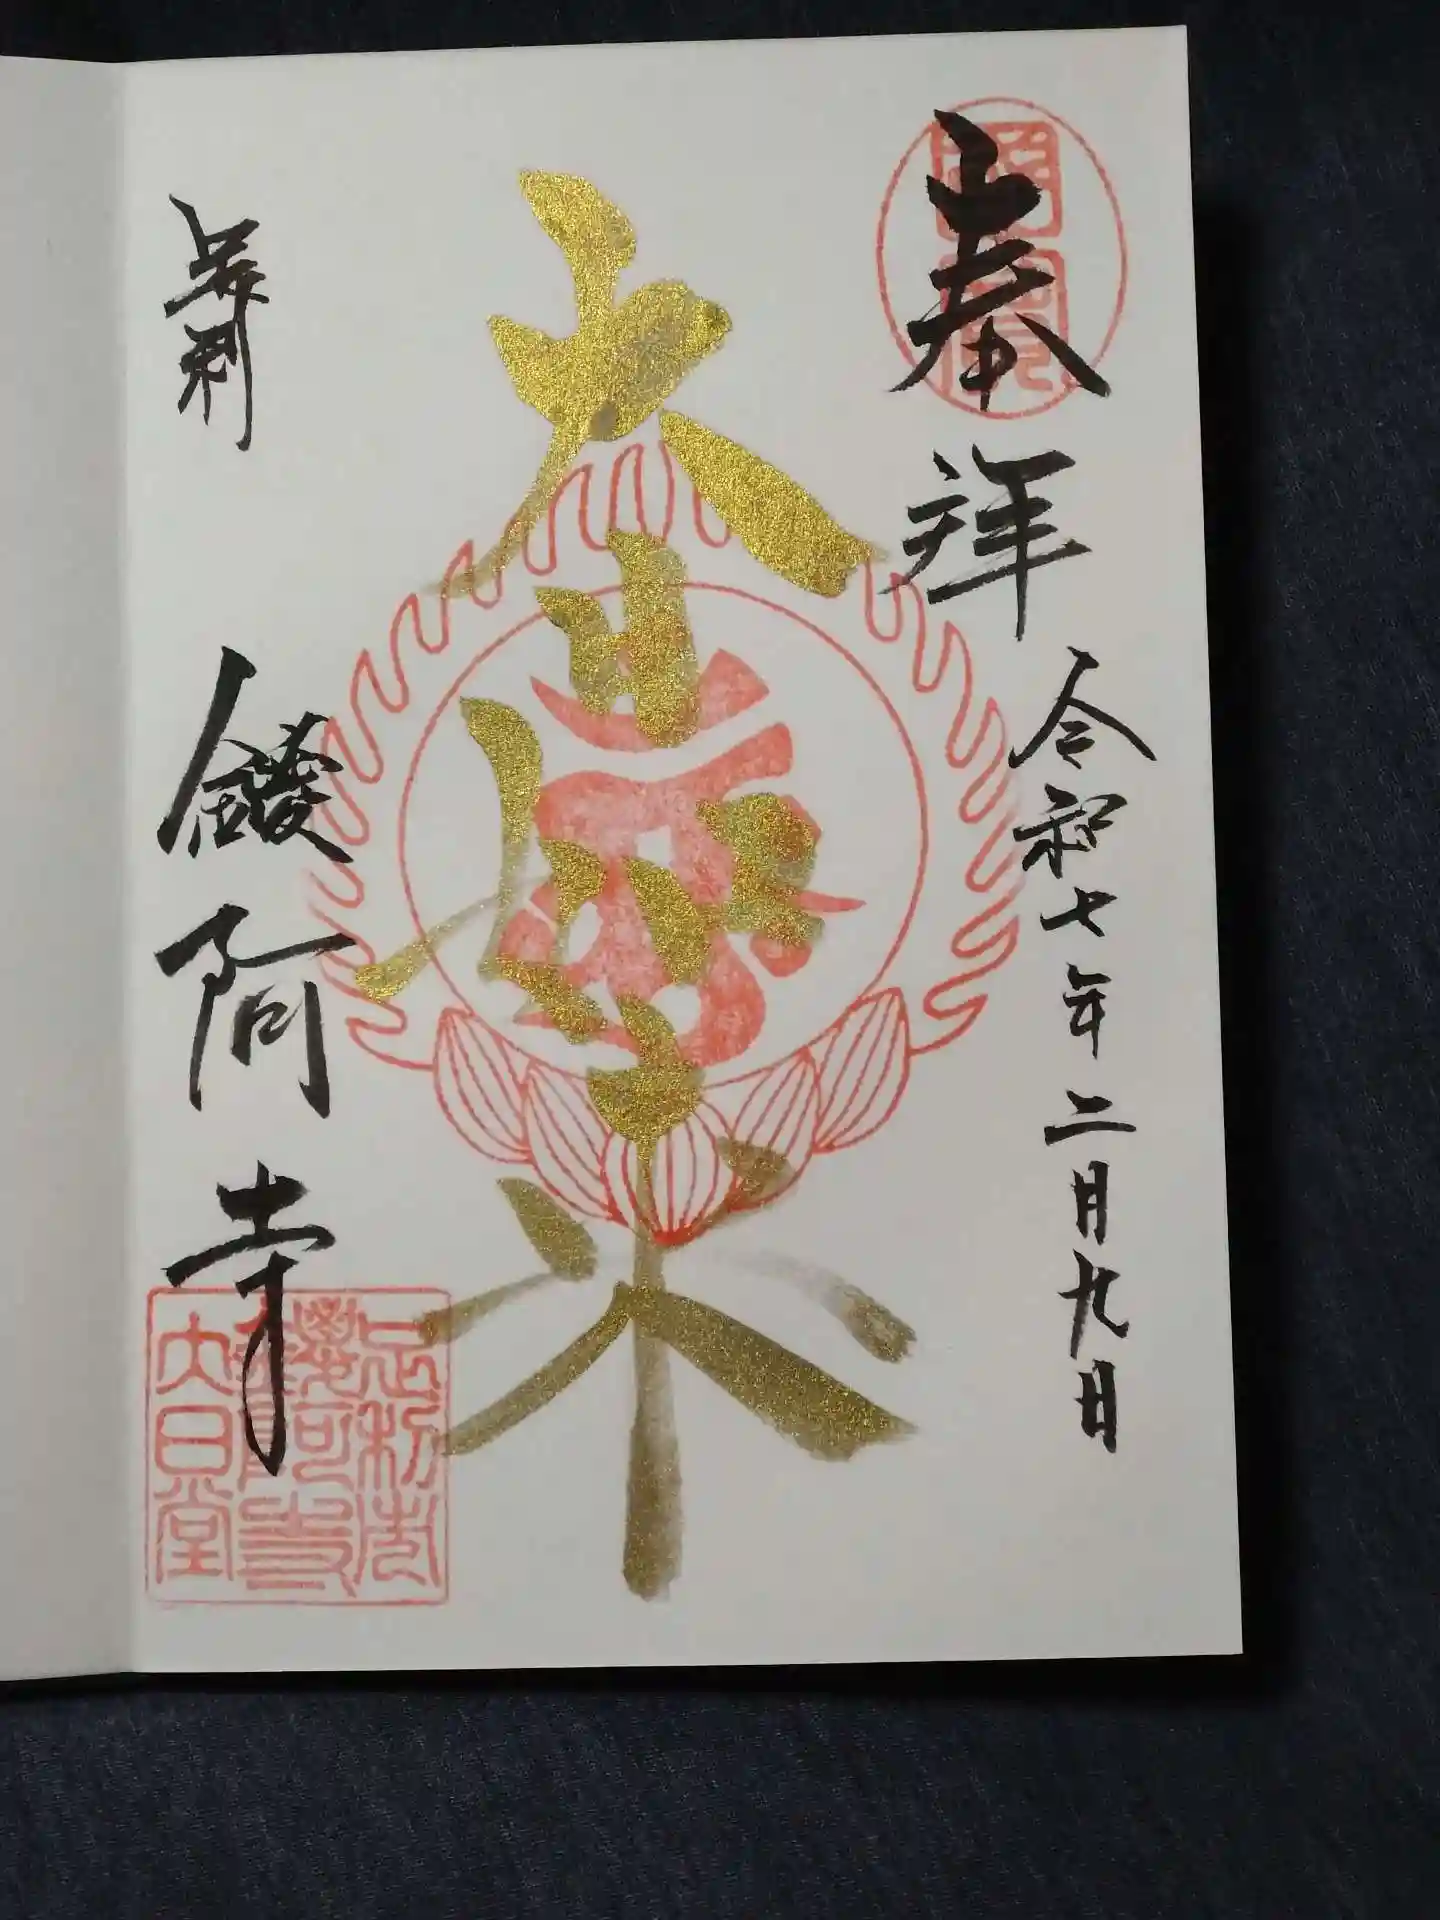 奉拝
令和七年二月九日
大日如来
足利
鑁阿寺
足利市
鑁阿寺
大日堂